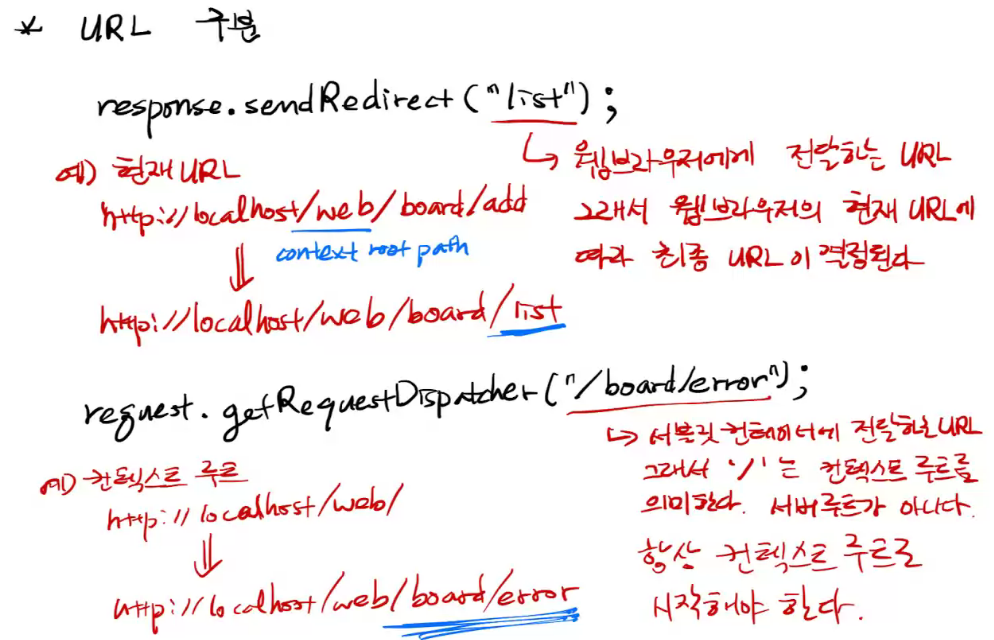 * URL 구분
response.sendRedirect("list");
↳ 웹브라우저에게 전달하는 URL
그래서 웹브라우저의 현재 URL에
따라 최종 URL이 결정된다
예) 현재 URL
http://localhost/web/board/add
context root path
⇓
http://localhost/web/board/list
request.getRequestDispatcher("/board/error");
↳ 서블릿 컨테이너에 전달하는 URL
그래서 '/'는 컨텍스트 루트를
의미한다. 서버루트가 아니다.
항상 컨텍스트 루트로
시작해야 한다.
예) 컨텍스트 루트
http://localhost/web/
⇓
http://localhost/web/board/error